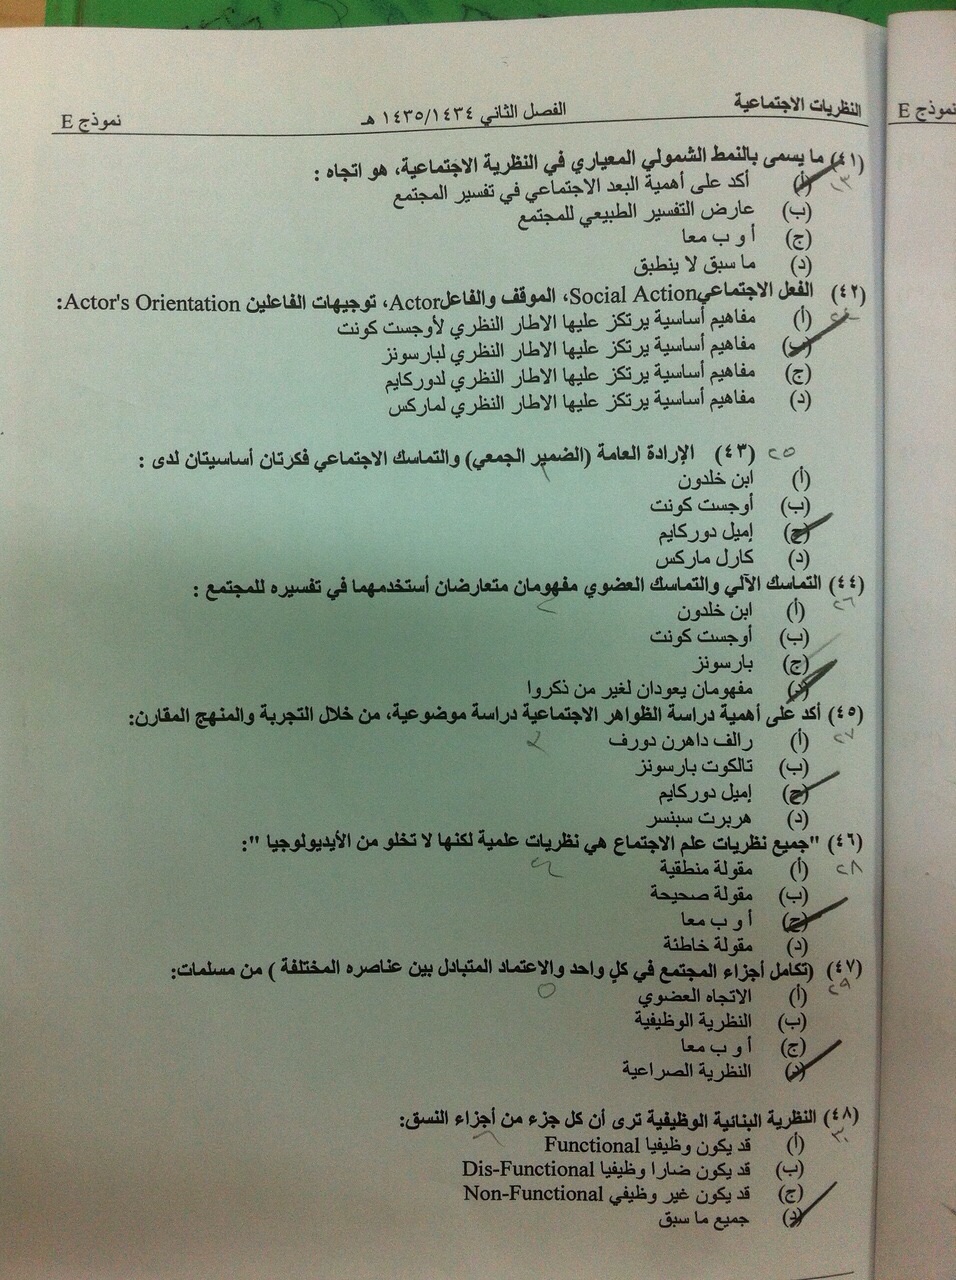 النظريات الاجتماعية الفصل الثاني ١٤٣٤/١٤٣٥ هـ نموذج E
نموذج E
(٤١) ما يسمى بالنمط الشمولي المعياري في النظرية الاجتماعية، هو اتجاه :
١٣
(أ) أكد على أهمية البعد الاجتماعي في تفسير المجتمع
(ب) عارض التفسير الطبيعي للمجتمع
(ج) أ و ب معا
(د) ما سبق لا ينطبق
(٤٢) الفعل الاجتماعيSocial Action، الموقف والفاعلActor، توجيهات الفاعلين Actor's Orientation:
(أ) مفاهيم أساسية يرتكز عليها الاطار النظري لأوجست كونت
(ب) مفاهيم أساسية يرتكز عليها الاطار النظري لبارسونز
(ج) مفاهيم أساسية يرتكز عليها الاطار النظري لدوركايم
(د) مفاهيم أساسية يرتكز عليها الاطار النظري لماركس
٢٥ (٤٣) الإرادة العامة (الضمير الجمعي) والتماسك الاجتماعي فكرتان أساسيتان لدى :
(أ) ابن خلدون
(ب) أوجست كونت
(ج) إميل دوركايم
(د) كارل ماركس
(٤٤) التماسك الآلي والتماسك العضوي مفهومان متعارضان أستخدمهما في تفسيره للمجتمع :
٢٦
(أ) ابن خلدون
(ب) أوجست كونت
(ج) بارسونز
(د) مفهومان يعودان لغير من ذكروا
(٤٥) أكد على أهمية دراسة الظواهر الاجتماعية دراسة موضوعية، من خلال التجربة والمنهج المقارن:
٢٧
(أ) رالف داهرن دورف
(ب) تالكوت بارسونز
(ج) إميل دوركايم
(د) هربرت سبنسر
(٤٦) "جميع نظريات علم الاجتماع هي نظريات علمية لكنها لا تخلو من الأيديولوجيا ":
٢٨
(أ) مقولة منطقية
(ب) مقولة صحيحة
(ج) أ و ب معا
(د) مقولة خاطئة
(٤٧) (تكامل أجزاء المجتمع في كلٍ واحد والاعتماد المتبادل بين عناصره المختلفة ) من مسلمات:
٢٩
(أ) الاتجاه العضوي
(ب) النظرية الوظيفية
(ج) أ و ب معا
(د) النظرية الصراعية
(٤٨) النظرية البنائية الوظيفية ترى أن كل جزء من أجزاء النسق:
٣٠
(أ) قد يكون وظيفيا Functional
(ب) قد يكون ضارا وظيفيا Dis-Functional
(ج) قد يكون غير وظيفي Non-Functional
(د) جميع ما سبق